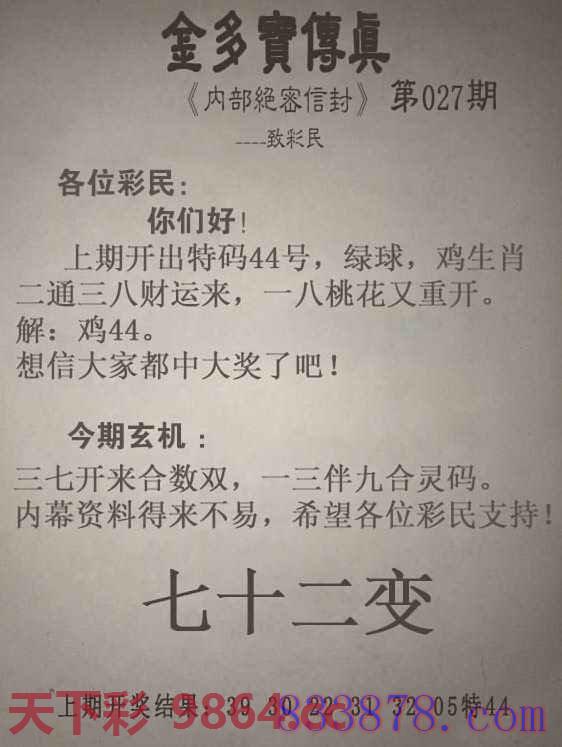 金多寶傳眞
《内部絕密信封》 第027期
----致彩民
各位彩民:
你们好!
上期开出特码44号，绿球，鸡生肖
二通三八财运来，一八桃花又重开。
解：鸡44。
想信大家都中大奖了吧！
今期玄机：
三七开来合数双，一三伴九合灵码。
内幕资料得来不易，希望各位彩民支持！
七十二变
上期开奖结果：39 30 22 31 32 05特44
天下彩 9864.cc 883878.com